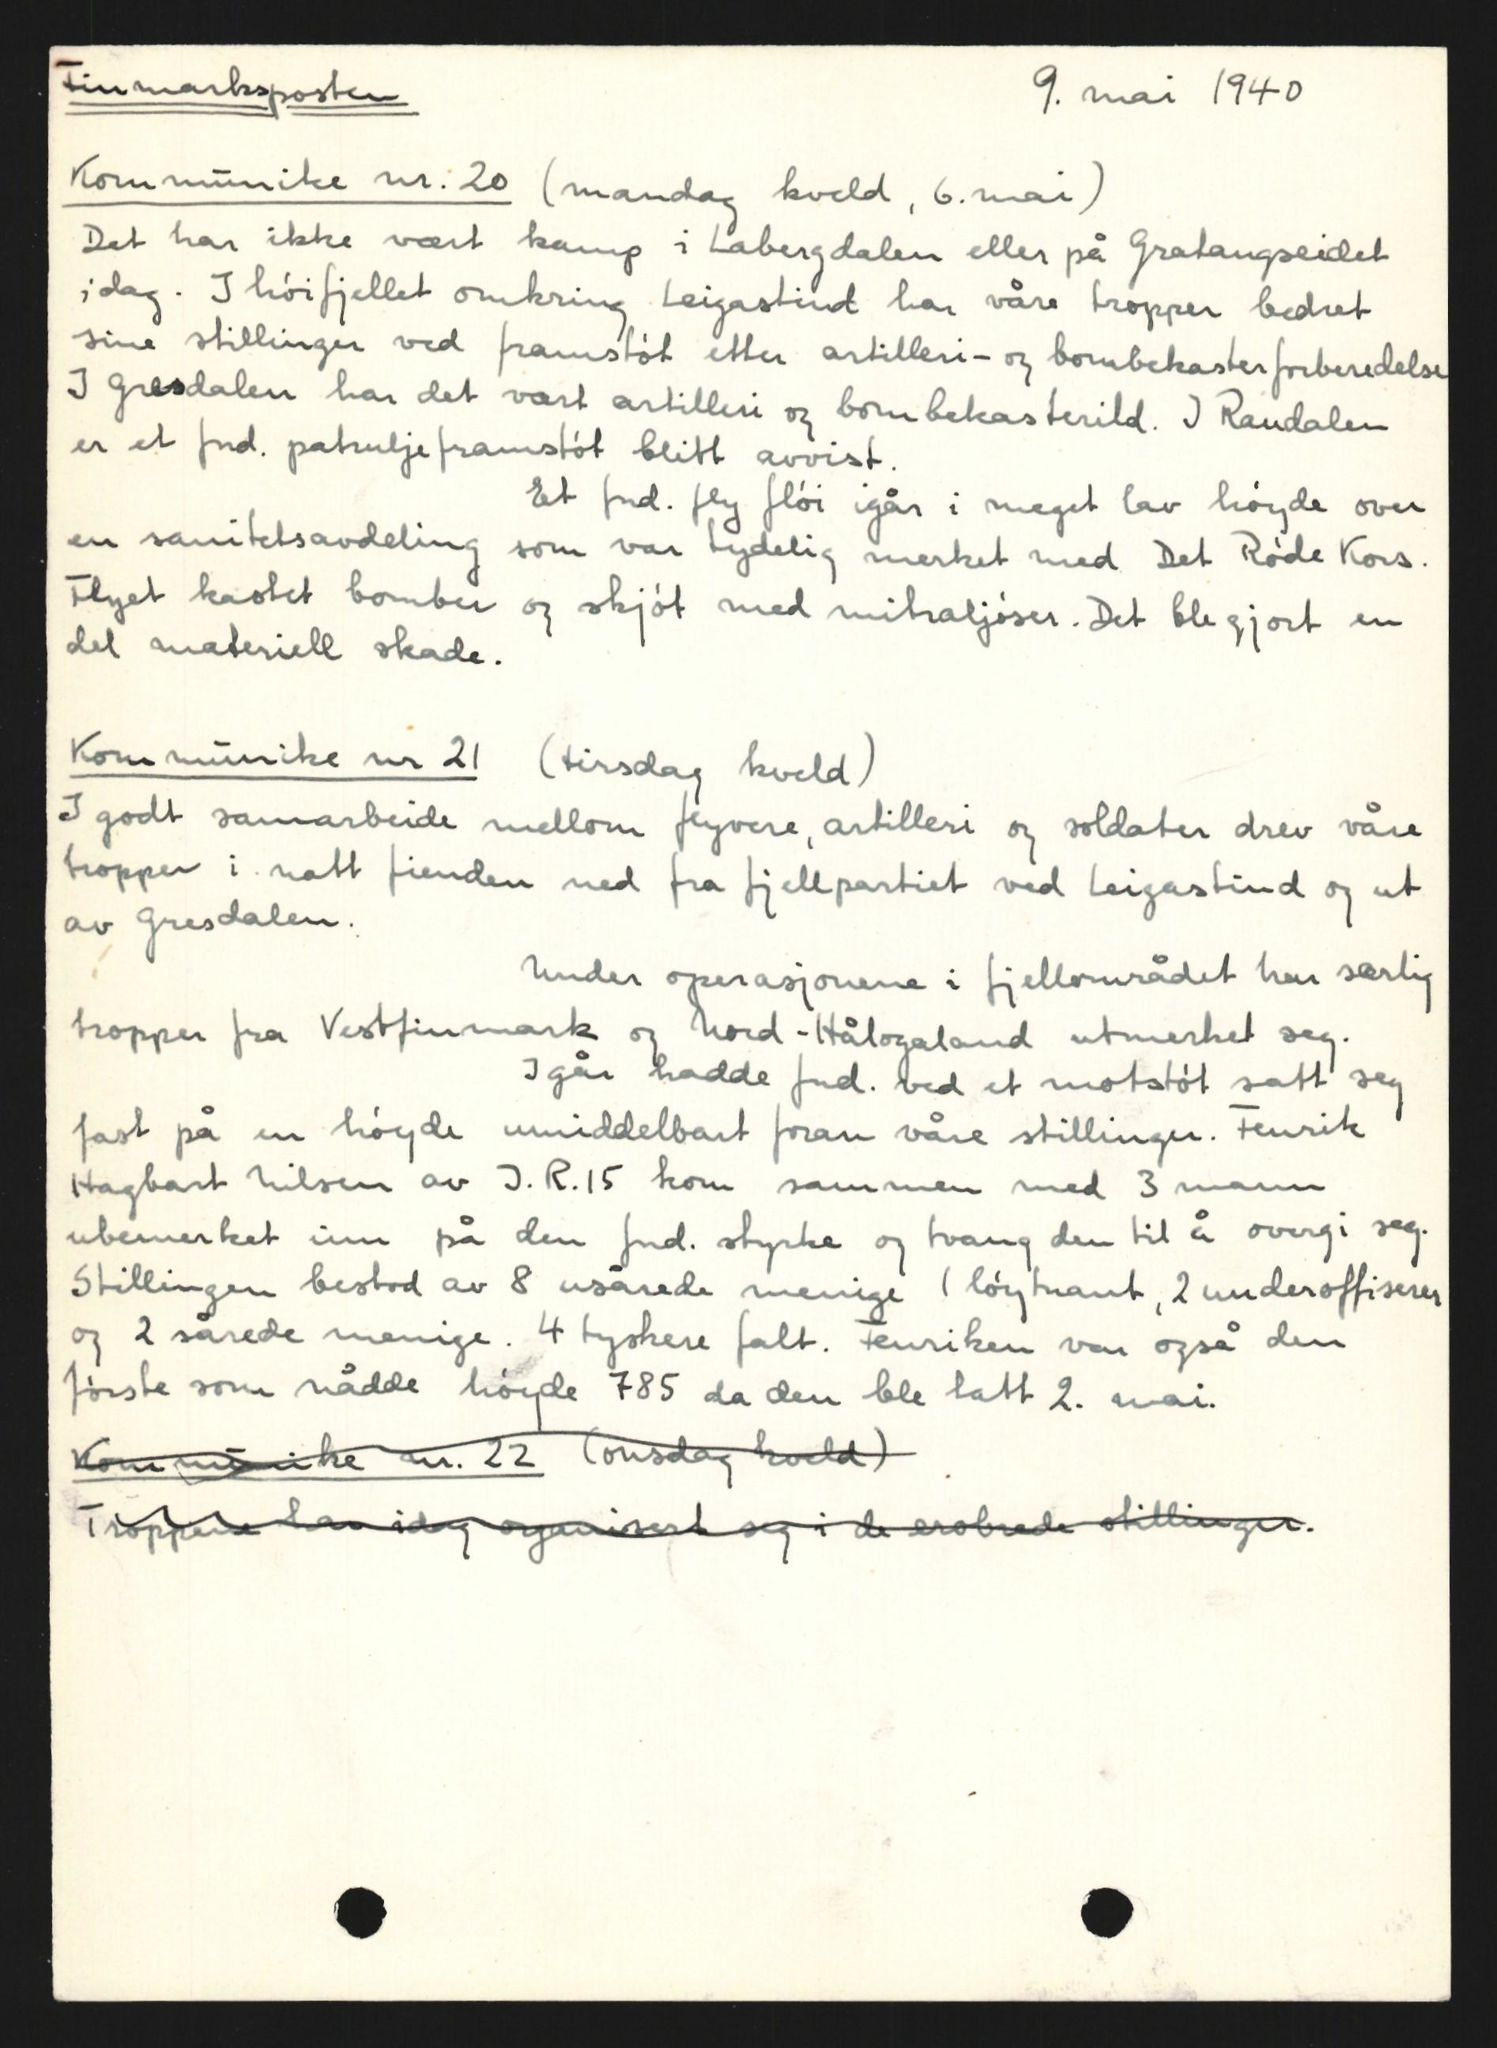 Finmarksposten 9. mai 1940
Kommūnike nr. 20 (mandag kveld, 6. mai)
Det har ikke vært kamp i Labergdalen eller på Gratangseidet
idag. I hóifjellet omkring Leigastind har våre tropper bedret
sine stillinger ved framstót etter artilleri- og bombekasterforberedelse
I Gresdalen har det vært artilleri og bombekasterild. I Raudalen
er et fnd. patruljeframstót blitt avvist.
Et fnd. fly flói igår i meget lav hóyde over
en sanitetsavdeling som var tydelig merket med Det Róde Kors.
Flyet kastet bomber og skjót med mitraljóser. Det ble gjort en
del materiell skade.
Kommūnike nr 21 (tirsdag kveld)
I godt samarbeide mellom flyvere, artilleri og soldater drev våre
tropper i natt fienden ned fra fjellpartiet ved Leigastind og ut
av Gresdalen.
Under operasjonene i fjellområdet har særlig
tropper fra Vestfinmark og Nord-Hålogaland utmerket seg.
Igår hadde fnd. ved et motstót satt seg
fast på en hóyde umiddelbart foran våre stillinger. Fenrik
Hagbart Nilsen av I.R.15 kom sammen med 3 mann
ubemerket inn på den fnd. styrke og tvang den til å overgi seg.
Stillingen bestod av 8 usårede menige 1 lóytnant, 2 underoffiserer
og 2 sårede menige. 4 tyskere falt. Fenriken var også den
fórste som nådde hóyde 785 da den ble tatt 2. mai.
Kommūnike nr. 22 (onsdag kveld)
Troppene har idag organisert seg i de erobrede stillinger.